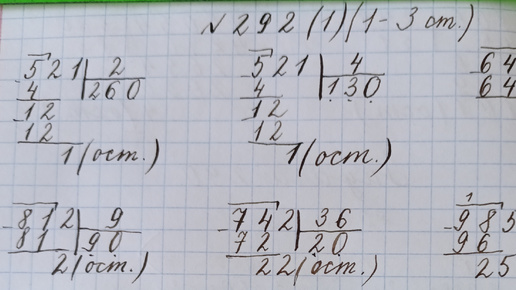 № 292 (1) (1-3 ст.)
521 2 521 4 64
4 260 4 130 64
12 12
12 12
1 (ост.) 1 (ост.)
812 9 742 36 985
81 90 72 20 96
2 (ост.) 22 (ост.) 25